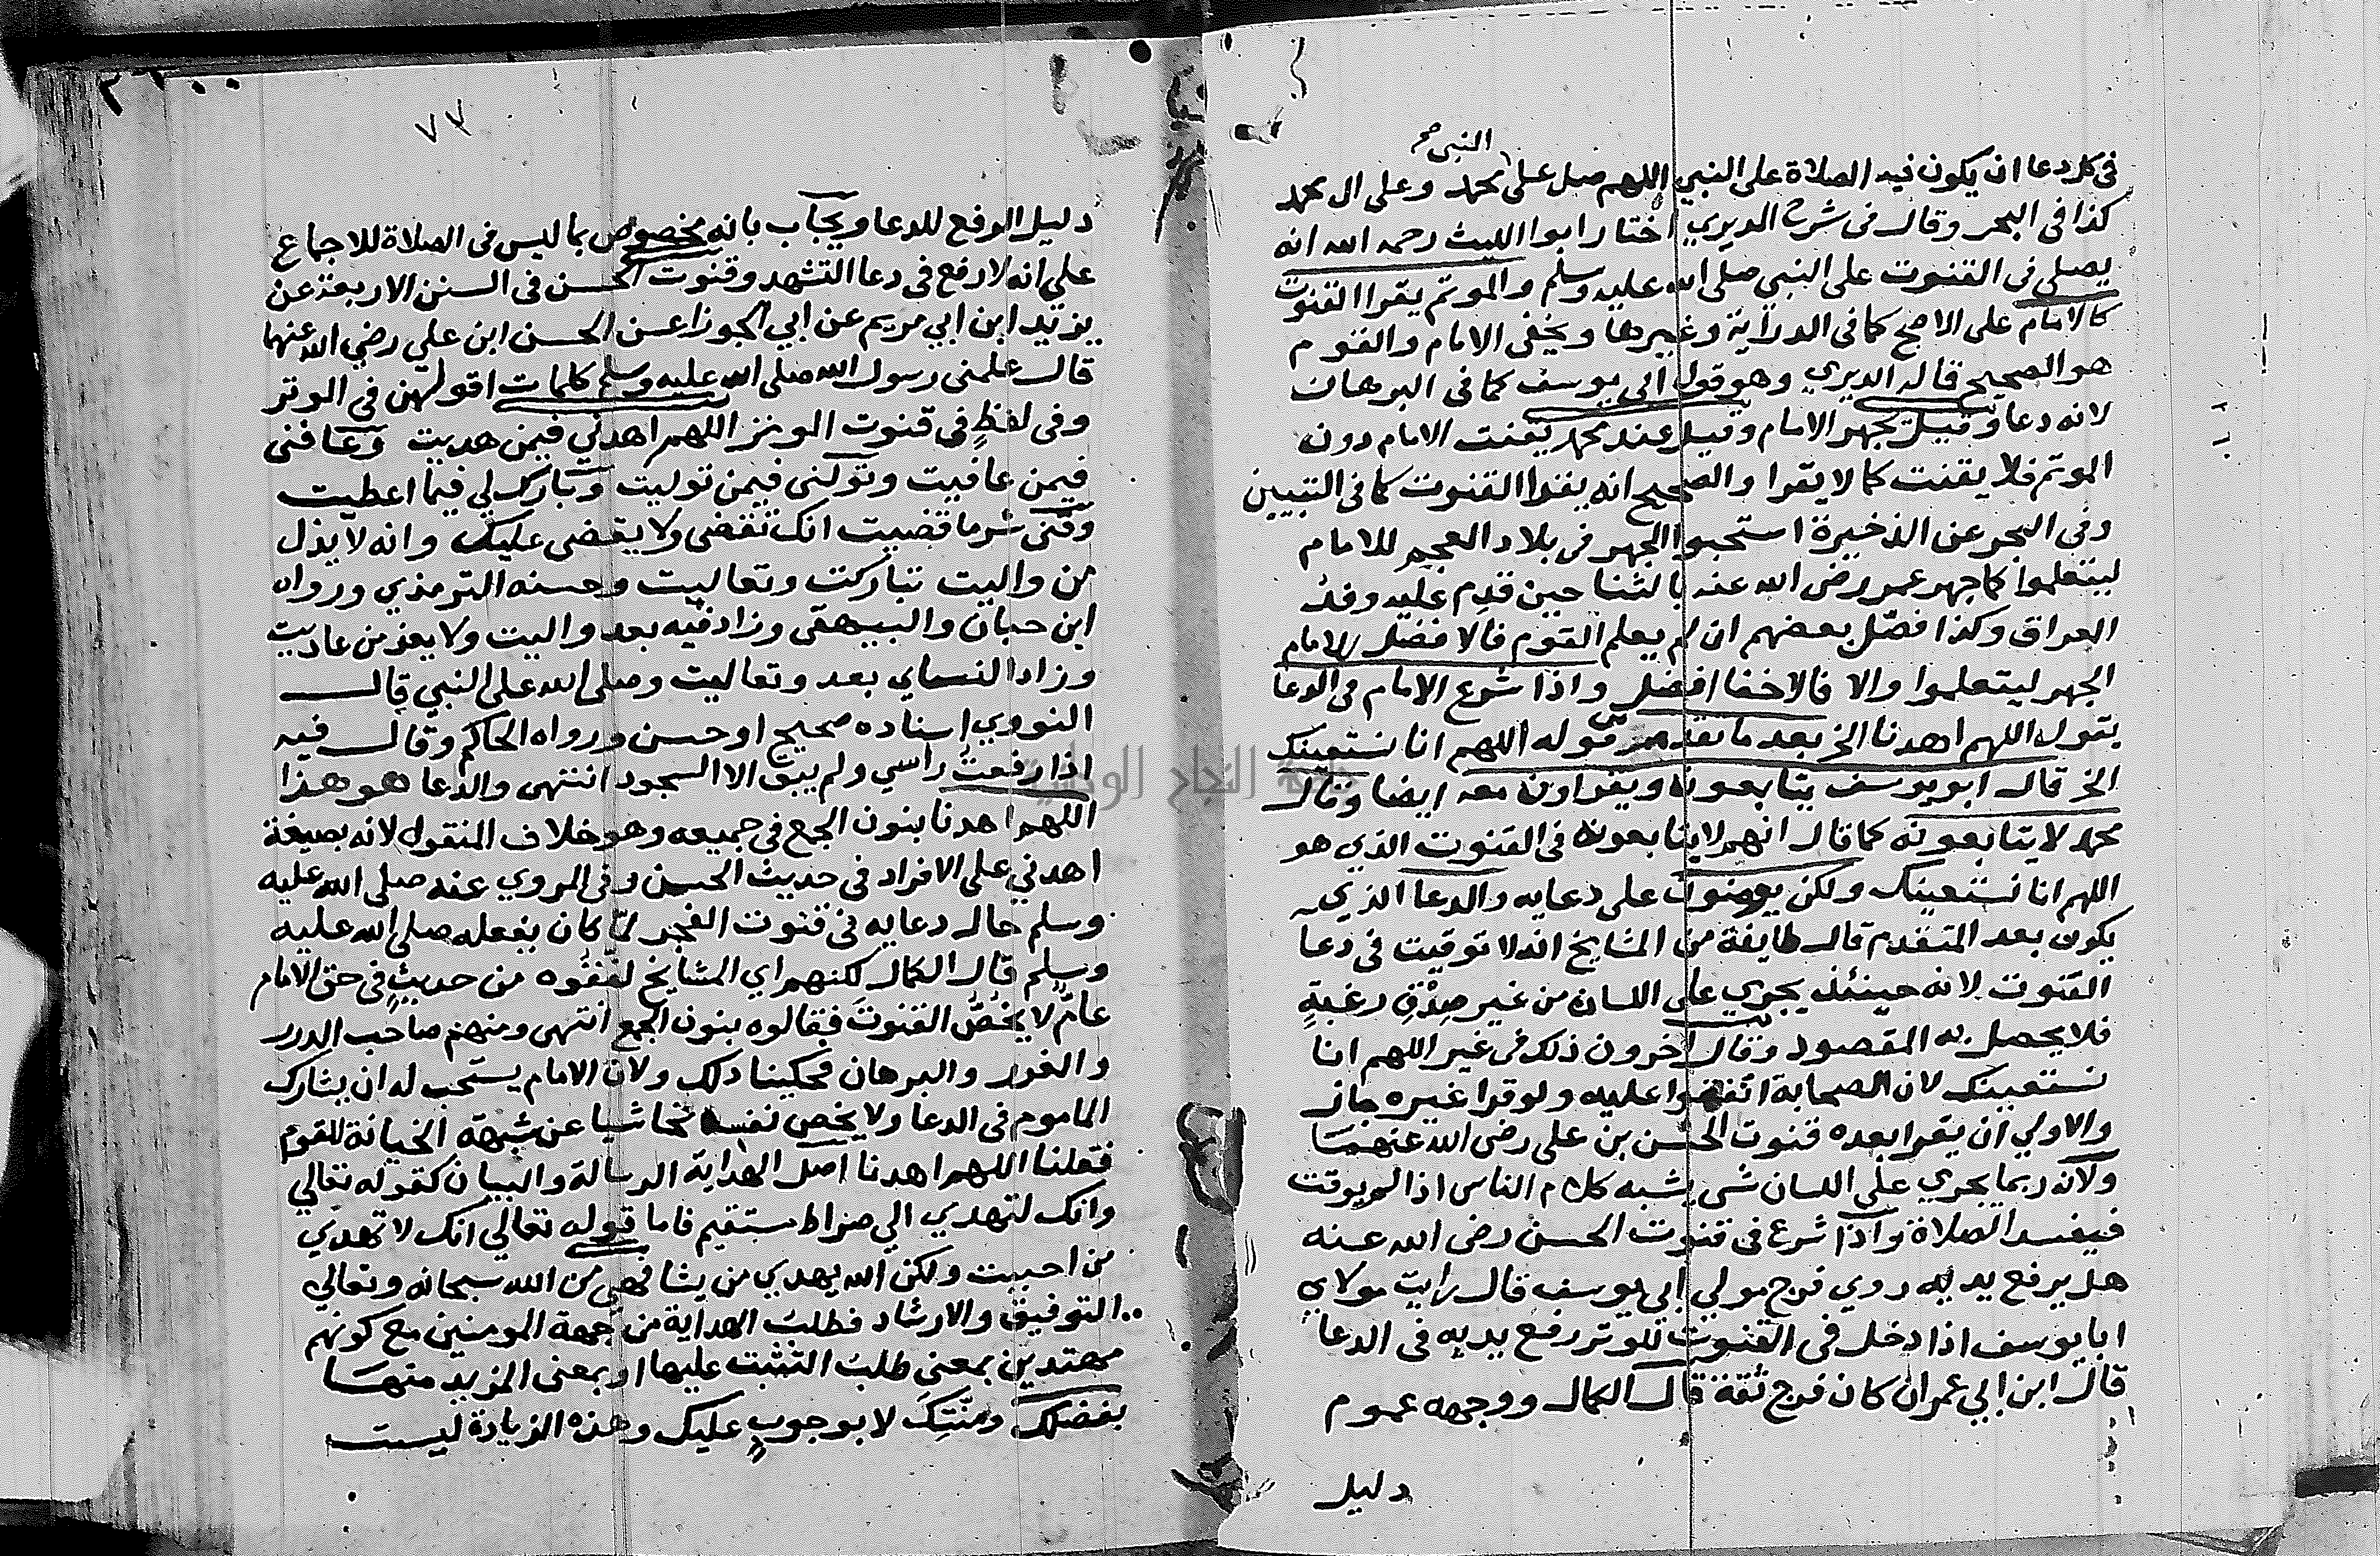 النبي صح
في كل دعا ان يكون فيه الصلاة على النبي اللهم صل على محمد وعلى ال محمد
كذا في البحر وقال في شرح الديري اختار ابوا الليث رحمه الله انه
يصلي في القنوت على النبي صلى الله عليه وسلم والموتم يقرا القنوت
كالامام على الاصح كما في الدراية وغيرها ويخفى الامام والقوم
هو الصحيح قاله الديري وهو قول ابي يوسف كما في البرهان
لانه دعا وقيل يجهر الامام وقيل عند محمد يقنت الامام دون
الموتم فلا يقنت كما لا يقرا والصحيح انه يقرا القنوت كما في التبيين
وفي البحر عن الذخيرة استحبوا الجهر في بلاد العجم للامام
ليتعلموا كما جهر عمر رضي الله عنه بالثنا حين قدم عليه وفد
العراق وكذا فصّل بعضهم ان لم يعلم القوم فالافضل للامام
الجهر ليتعلموا والا فالاخفا افضل واذا شرع الامام في الدعا
يقول اللهم اهدنا الخ بعد ما تقدم من قوله اللهم انا نستعينك
الخ قال ابو يوسف يتابعونه ويقراون معه ايضا وقال
محمد لا يتابعونه كما قال انهم لا يتابعونه في القنوت الذي هو
اللهم انا نستعينك ولكن يومنون على دعايه والدعا الذي
يكون بعد المتقدم قال طايفة من المشايخ انه لا توقيت في دعا
القنوت لانه حينئذ يجري على اللسان من غير صِدْقِ رغبةٍ
فلا يحصل به المقصود وقال اخرون ذلك في غير اللهم انا
نستعينك لان الصحابة اتفقوا عليه ولو قرا غيره جاز
والاولي ان يقرا بعده قنوت الحسن بن على رضى الله عنهما
ولانه ربما يجري على اللسان شي يشبه كلام الناس اذا لم يوقت
فيفسد الصلاة واذا شرع في قنوت الحسن رضى الله عنه
هل يرفع يديه روي فرج مولي ابي يوسف قال رايت مولاي
ابا يوسف اذا دخل في القنوت للوتر رفع يديه في الدعا
قال ابن ابي عمران كان فرج ثقة قال الكمال ووجهه عموم
دليل
٧٧
دليل الرفع للدعا ويجاب بانه مخصوص بما ليس في الصلاة للاجماع
على انه لا رفع في دعا التشهد وقنوت الحسن في السنن الاربعة عن
يزيد ابن ابي مريم عن ابي الجوزا عن الحسن ابن علي رضي الله عنهما
قال علمني رسول الله صلى الله عليه وسلم كلمات اقولهن في الوتر
وفي لفظٍ في قنوت الوتر اللهم اهدني فيمن هديت وعافني
فيمن عافيت وتولني فيمن توليت وبارك لي فيما اعطيت
وقني شر ما قضيت انك تقضي ولا يقضى عليك وانه لا يذل
من واليت تباركت وتعاليت وحسنه الترمذي ورواه
ابن حبان والبيهقي وزاد فيه بعد واليت ولا يعز من عاديت
وزاد النساي بعد وتعاليت وصلى الله على النبي قال
النووي اسناده صحيح او حسن ورواه الحاكم وقال فيه
اذا رفعتُ راسي ولم يبق الا السجود انتهى والدعا هو هذا
اللهم اهدنا بنون الجمع في جميعه وهو خلاف المنقول لانه بصيغة
اهدني على الافراد في حديث الحسن وفي المروي عنه صلى الله عليه
وسلم حال دعايه في قنوت الفجر لمّا كان يفعله صلى الله عليه
وسلم قال الكمال لكنهم اي المشايخ لفّقوه من حديثٍ في حق الامام
عامٌّ لا يخصُّ القنوتَ فقالوه بنون الجمع انتهى ومنهم صاحب الدرر
والغرر والبرهان فحكينا ذلك ولان الامام يستحب له ان يشارك
الماموم في الدعا ولا يخص نفسه تحاشيا عن شبهة الخيانة للقوم
فقلنا اللهم اهدنا اصل الهداية الرسالة والبيان كقوله تعالي
وانك لتهدي الي صراط مستقيم فاما قوله تعالي انك لا تهدي
من احببت ولكن الله يهدي من يشا فهي من الله سبحانه وتعالي
التوفيق والارشاد فطلب الهداية من جهة المومنين مع كونهم
مهتدين بمعنى طلب التثبت عليها او بمعنى المزيد منها
بفضلك ومنّتِكَ لا بوجوبٍ عليك وهذه الزيادة ليست
جامعة النجاح الوطنية